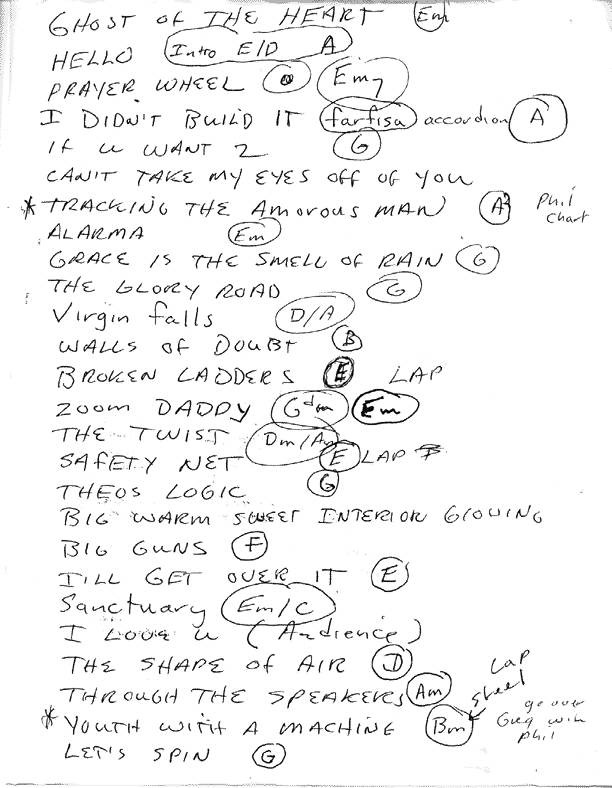 GHOST OF THE HEART Em
HELLO Intro E/D A
PRAYER WHEEL Em7
I DIDN'T BUILD IT farfisa accordion A
If U WANT 2 G
CAN'T TAKE MY EYES OFF OF YOU
* TRACKING THE AMOROUS MAN A Phil chart
ALARMA Em
GRACE IS THE SMELL OF RAIN G
THE GLORY ROAD G
Virgin falls D/A
WALLS OF DOUBT B
BROKEN LADDERS E LAP
ZOOM DADDY Em
THE TWIST Dm/Am
SAFETY NET E LAP
THEOS LOGIC G
BIG WARM SWEET INTERIOR GLOWING
BIG GUNS F
I'LL GET OVER IT E
Sanctuary Em/C
I LOVE U (Audience)
THE SHAPE OF AIR D
THROUGH THE SPEAKERS Am
Lap steel
* YOUTH WITH A MACHINE Bm
go over Greg with Phil
LET'S SPIN G